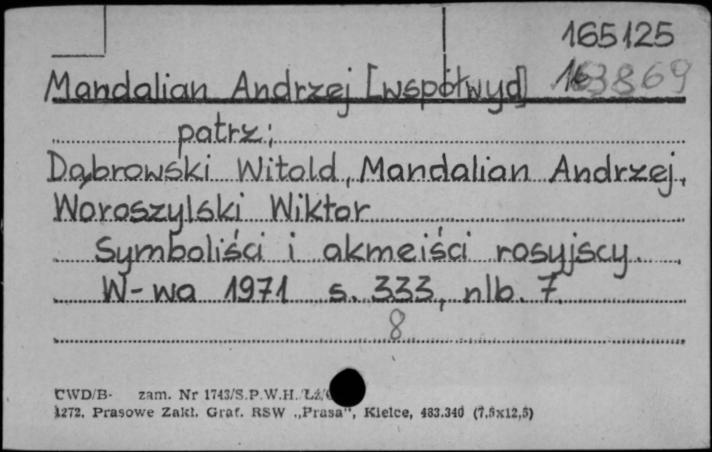 165125
Mandalian Andrzej [współwyd] 163869
patrz;
Dąbrowski Witold, Mandalian Andrzej,
Woroszylski Wiktor
Symboliści i akmeiści rosyjscy.
W-wa 1971 s. 333, nlb. 7.
8
CWD/B- zam. Nr 1743/S.P.W.H.
1272. Prasowe Zakł. Graf. RSW „Prasa", Kielce, 483.340 (7,5x12,5)